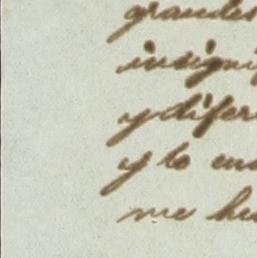 grandes
insigni
y difer
y lo en
me hu